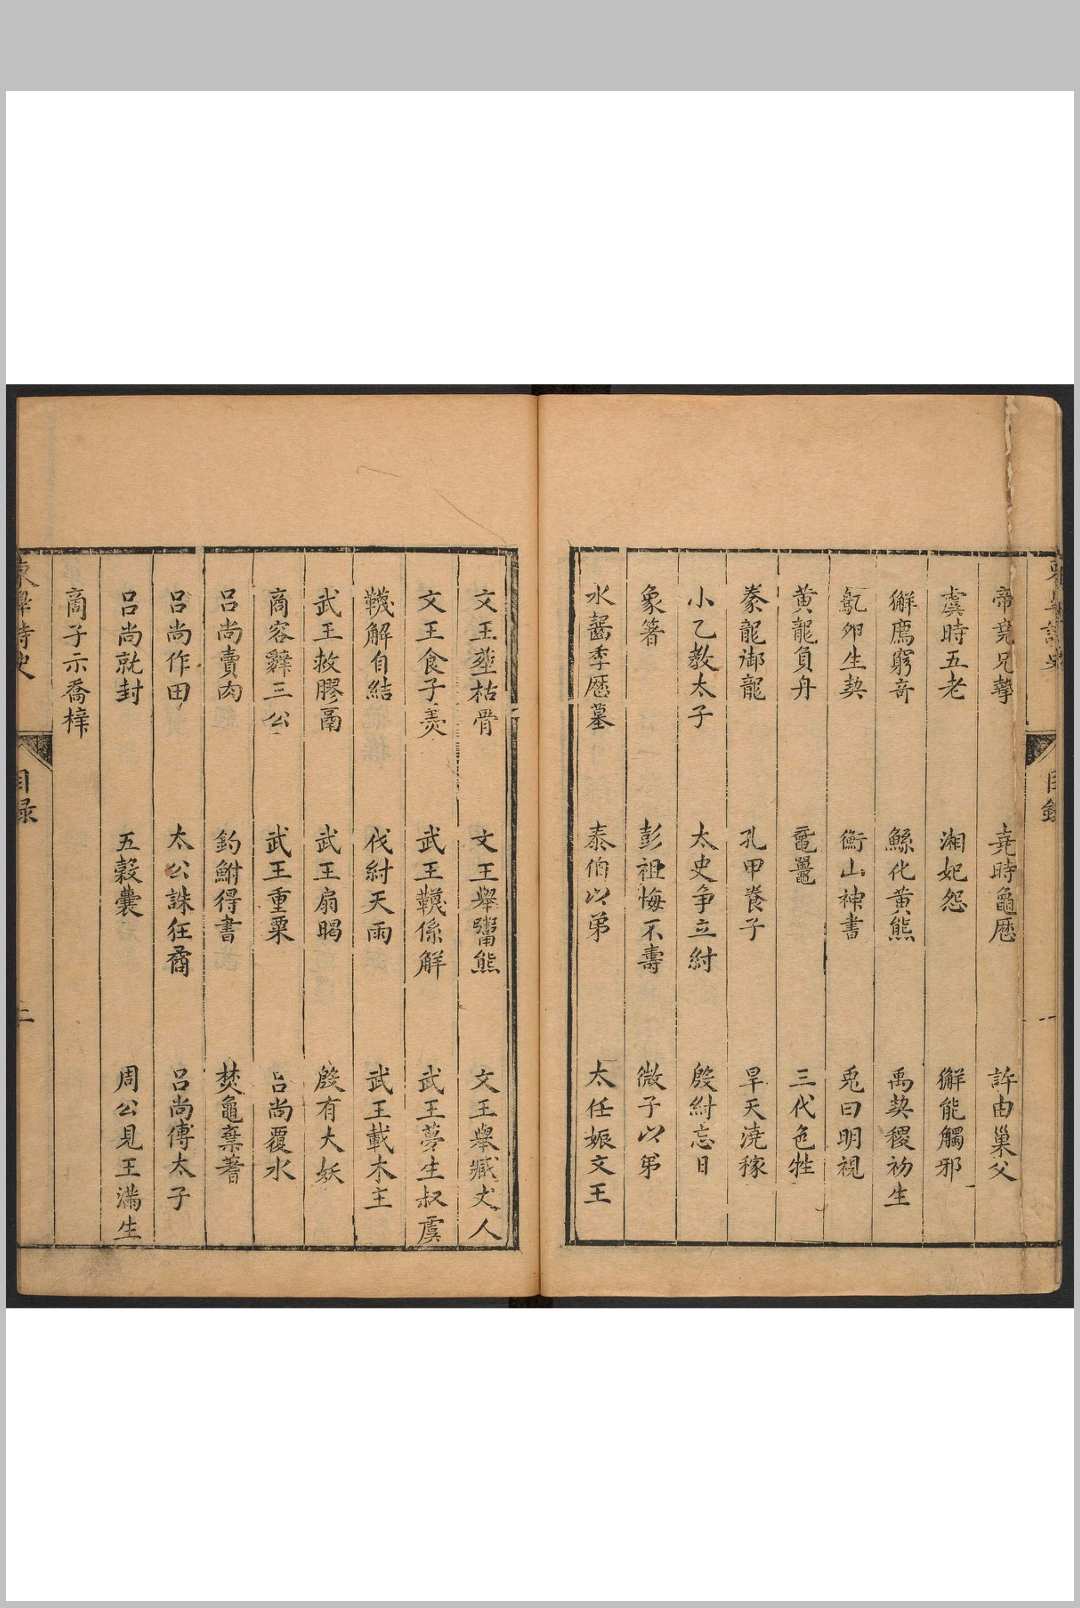 帝堯兄摯 堯時龜曆 許由巢父
虞時五老 湘妃怨 獬能觸邪
獬廌窮奇 鯀化黃熊 禹契稷初生
鳦卵生契 衡山神書 兎曰明視
黃龍負舟 黿鼉 三代色牲
豢龍御龍 孔甲養子 旱天澆稼
小乙教太子 太史爭立紂 殷紂忘日
象箸 彭祖悔不壽 微子以弟
水齧季歷墓 泰伯以弟 太任娠文王
文王葬枯骨 文王舉鬻熊 文王舉臧丈人
文王食子羹 武王韈係解 武王夢生叔虞
韈解自結 伐紂天雨 武王載木主
武王救膠鬲 武王扇暍 殷有大妖
商容辭三公 武王重粟 呂尚覆水
呂尚賣肉 釣鮒得書 焚龜棄蓍
呂尚作田 太公誅狂矞 呂尚傅太子
呂尚就封 五穀囊 周公見王滿生
商子示喬梓
目錄
二